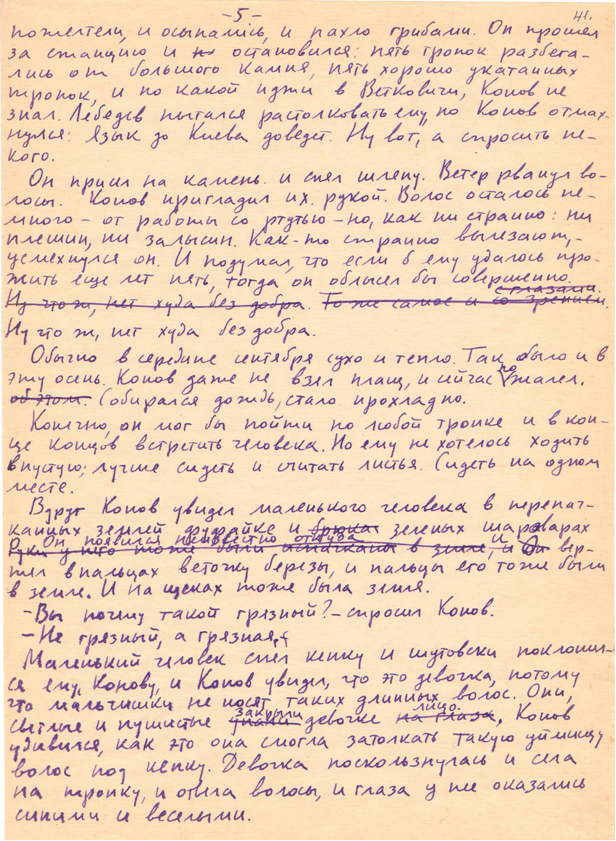 -5-
41.
пожелтели, и осыпались, и пахло грибами. Он прошел
за станцию и остановился: пять тропок разбега-
лись от большого камня, пять хорошо укатанных
тропок, и по какой идти в Ветковичи, Копов не
знал. Лебедев пытался растолковать ему, но Копов отмах-
нулся: Язык до Киева доведет. Ну вот, а спросить не-
кого.
Он присел на камень и снял шляпу. Ветер рванул во-
лосы. Копов пригладил их рукой. Волос осталось не-
много – от работы со ртутью – но, как ни странно: ни
плешин, ни залысин. Как-то странно вылезают, –
усмехнулся он. И подумал, что если б ему удалось про-
жить еще лет пять, тогда он облысел бы совершенно.
с глазами.
Ну что ж, нет худа без добра. То же самое и со зрением.
Ну что ж, нет худа без добра.
Обычно в середине сентября сухо и тепло. Так было и в
эту осень. Копов даже не взял плащ, и сейчас пожалел.
об этом. Собирался дождь, стало прохладно.
Конечно, он мог бы пойти по любой тропке и в кон-
це концов встретить человека. Но ему не хотелось ходить
впустую; лучше сидеть и считать листья. Сидеть на одном
месте.
Вдруг Копов увидел маленького человека в перепач-
канных землей фуфайке и брюках зеленых шароварах
Он появился неизвестно откуда и
Руки у него тоже были испачканы в земле, и Он вер-
тел в пальцах веточку березы, и пальцы его тоже были
в земле. И на щеках тоже была земля.
– Вы почему такой грязный? – спросил Копов.
– Не грязный, а грязная, –
Маленький человек снял кепку и шутовски поклонил-
ся ему, Копову, и Копов увидел, что это девочка, потому
что мальчишки не носят таких длинных волос. Они,
закрыли лицо.
светлые и пушистые упали девочке на глаза, Копов
удивился, как это она смогла затолкать такую уймищу
волос под кепку. Девочка поскользнулась и села
на тропку, и отвела волосы, и глаза у нее оказались
синими и веселыми.